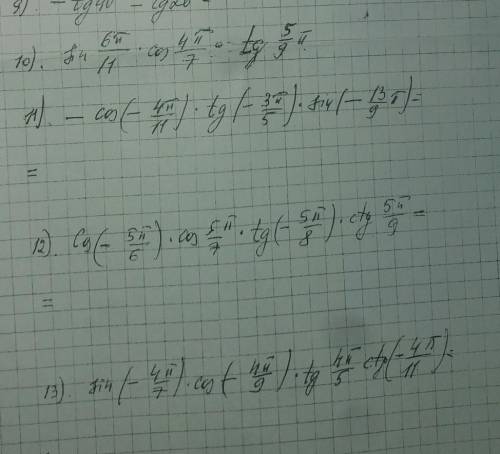 10). sin 6π/11 · cos 4π/7 · tg 5/9 π
11). - cos(- 4π/11) · tg(- 3π/5) · sin(- 13/9 π) =
=
12). Cos(- 5π/6) · cos 5/7 π · tg(- 5π/8) · ctg 5π/9 =
=
13). sin(- 4π/7) · cos(- 4π/9) · tg 4π/5 ctg(- 4π/11) =